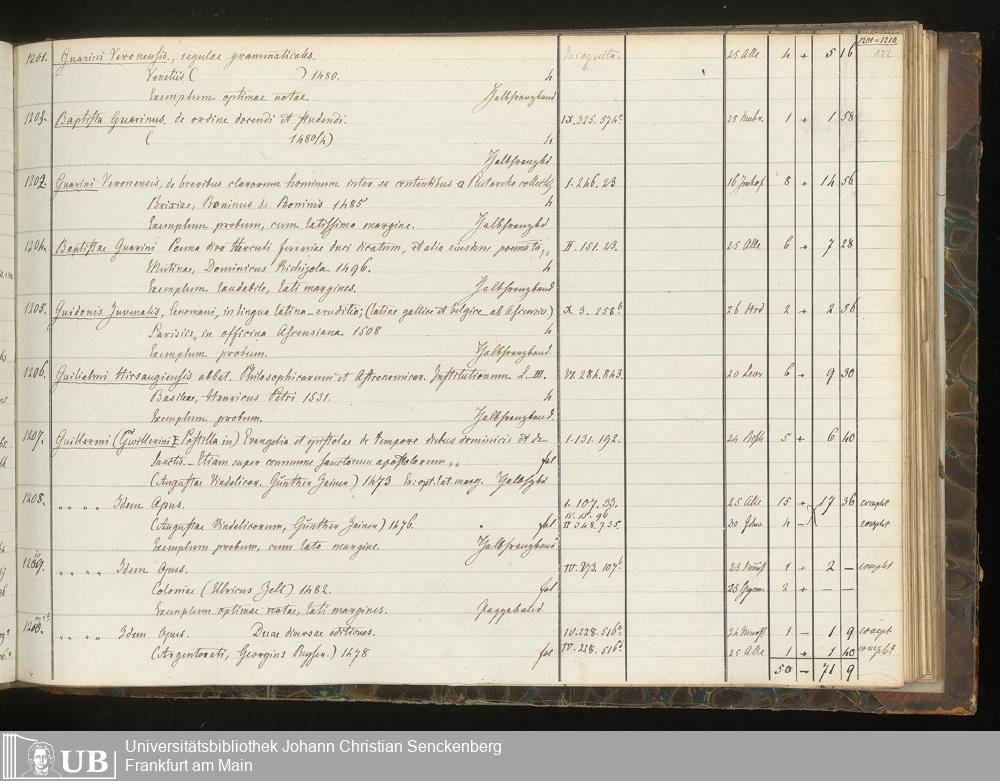 1201=1210
122
1201. Guarini Veronensis, regulae grammaticales. Incognita. 25 Alle 4 + 5 16
Venetiis ( ) 1480. 4
Exemplum optimae notae. Halbfranzband
1203. Baptista Guarinus. de ordine docendi et studendi. IX.325.574 25 1 + 1 58
( 1480/4) 4
Halbfranzbd
1202. Guarini Veronensis, de brevibus clarorum hominum inter se contentibus a Plutarcho collectis 1.246.23 16 8 + 14 56
Brixiae, Boninus de Boninis 1485 4
Exemplum probum, cum latissimo margine. Halbfranzbd
1204. Baptistae Guarini Poema divo Herculi ferrariae duci dicatum, et alia eiusdem poemata, II.151.23. 25 Alle 6 + 7 28
Mutinae, Dominicus Richizola 1496. 4
Exemplum laudabile, lati margines. Halbfranzband
1205. Guidonis Juvenalis, Cenomani, in lingua latina eruditio; (latine gallice et belgice ab Ascensio) X. 3. 258b 26 2 + 2 56
Parisiis, in officina Ascensiana 1508 4
Exemplum probum. Halbfranzband.
1206. Guilielmi Hirsaugiensis abbat. Philosophicarum et Astronomicar. Institutionum L. III. VI.282.843. 20 6 + 9 30
Basileae, Henricus Petri 1531. 4
Exemplum probum. Halbfranzband.
1207. Guillermi (Gwillerini Postilla in) Evangelia et epistolas de tempore diebus dominicis et de 1.131.192. 24 5 + 6 40
Sanctis. – Etiam super commune sanctorum apostolorum fol
(Augustae Vindelicor. Günther Zainer) 1473 Ex: opt. lat. marg. Halbfzbd
1208. " " " Idem Opus. 1. 107. 93. 25 Alle 15 + 17 36 complet
(Augustae Vindelicorum, Günther Zainer) 1476. fol IV. 15. 96 II.348.735. 30 4 – complet
Exemplum probum, cum lato margine. Halbfranzband
1209. " " " Idem Opus. IV.273.107b 23 1 + 2 — complet
Coloniae (Ulricus Zell) 1482. fol 23 2 + — —
Exemplum optimae notae, lati margines. Pappband
1210. " " " Idem Opus. Duae diversae editiones. IV.228.516a 24 1 – 1 9
(Argentorati, Georgius Reyser.) 1478 fol IV.228.516b 25 Alle 1 + 1 40 complet
50 – 71 9
UB
Universitätsbibliothek Johann Christian Senckenberg
Frankfurt am Main